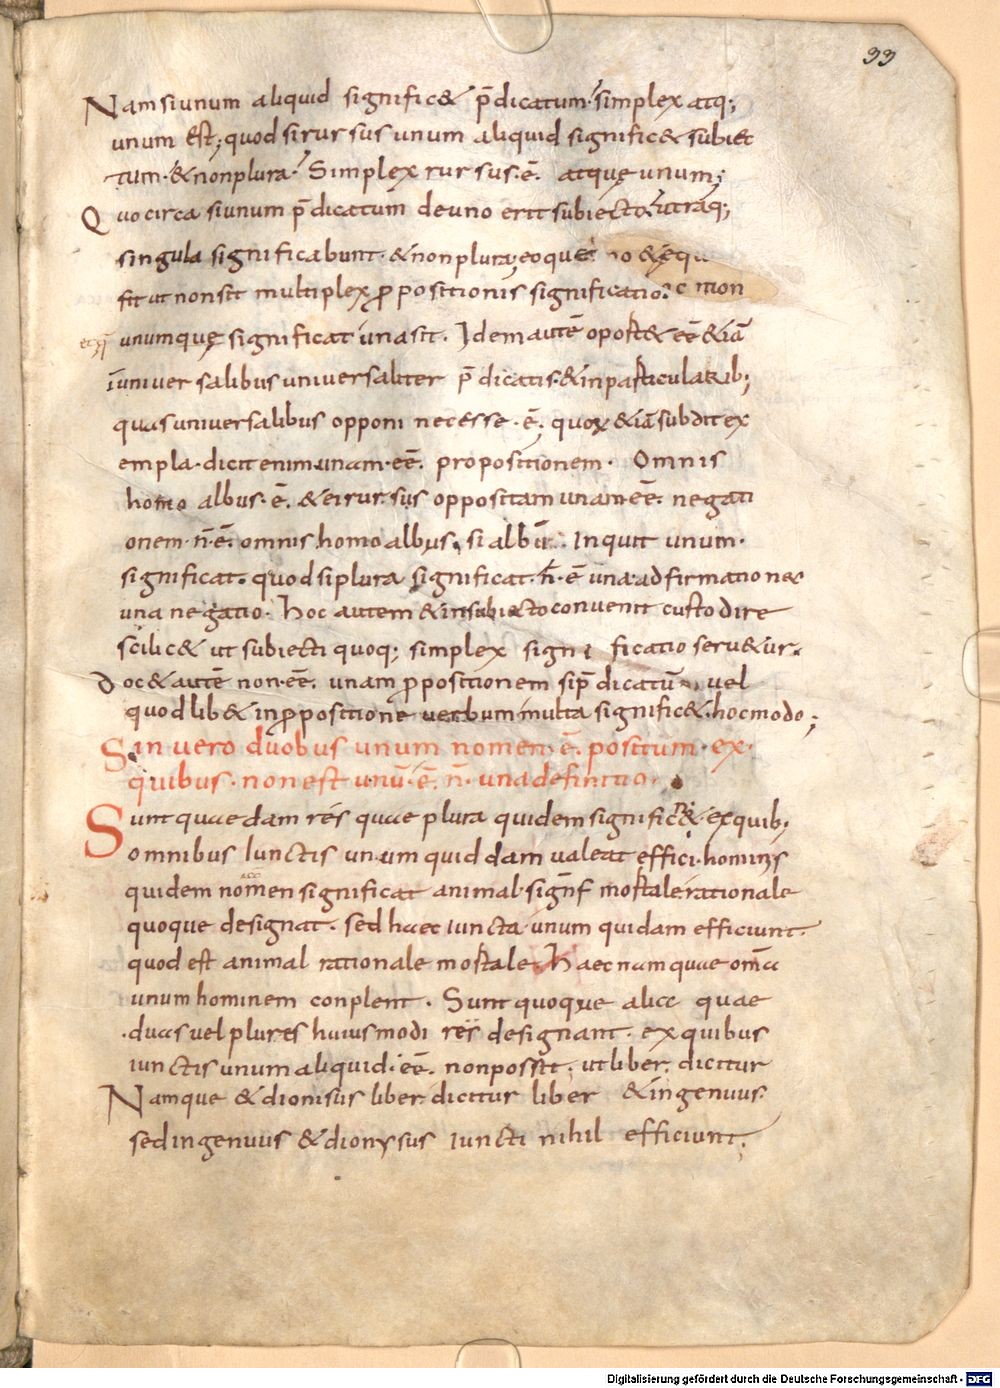 33
Nam si unum aliquid signific& p̄dicatum· simplex atq;
unum est; quod si rursus unum aliquid signific& subiec
tum· & non plura· Simplex rursus· ē· atque unum;
Quocirca si unum p̄dicatum de uno erit subiecto· utraq;
singula significabunt· & non plura; eoque
fit ut non sit multiplex ꝓpositionis significatio·
unum quę significat una sit· Idem autē oport& eē &iā
in uniuersalibus uniuersaliter p̄dicatis· & in particularib;
quas uniuersalibus opponi necesse· ē· quoꝝ &iā subdit ex
empla· dicit enim unam· eē· propositionem· Omnis
homo albus· ē· & ei rursus oppositam unam eē· negati
onem· n̄ ē· omnis homo albus· si albū· Inquit unum·
significat· quod si plura significat· n̄· ē una adfirmatio nec
una negatio· hoc autem & in subiecto conuenit custodire
scilic& ut subiecti quoq; simplex signi ficatio seru&ur·
Doc& autē non· eē· unam ꝓpositionem si p̄dicatū uel
quodlib& in ꝓpositione uerbum multa signific&· hoc modo;
Sin uero duobus unum nomen· ē· positum· ex·
quibus· non est unū· ē· n̄· una definitio·
Sunt quaedam res quae plura quidem signific& ex quib;
omnibus Iunctis unum quiddam ualeat effici· hominis
quidem nomen significat animal· signf mortale· rationale
quoque designat· sed haec iuncta unum quidam efficiunt·
quod est animal rationale mortale· haec namquae om̄a
unum hominem conplent· Sunt quoque aliae quae
duas uel plures huiusmodi res designant· ex quibus
iunctis unum aliquid· eē· non possit· ut liber· dicitur
Namque & dionisus liber· dicitur liber & ingenuus·
sed ingenuus & dionysus iuncti nihil efficiunt·
Digitalisierung gefördert durch die Deutsche Forschungsgemeinschaft - DFG